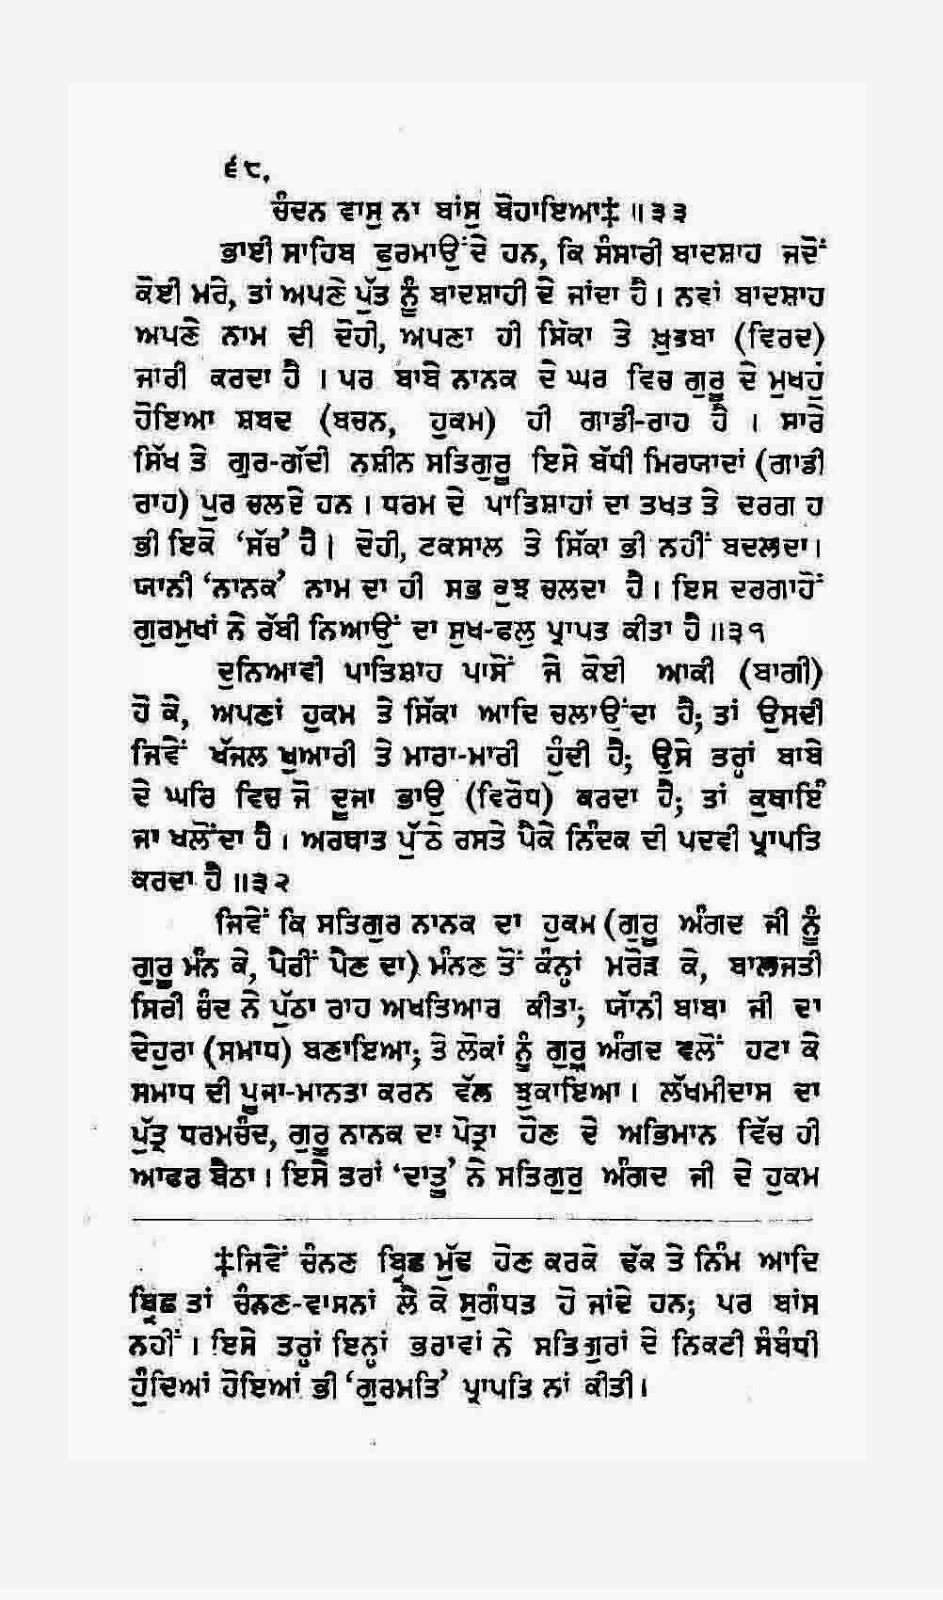 ੬੮.
ਚੰਦਨ ਵਾਸੁ ਨਾ ਬਾਂਸੁ ਬੋਹਾਇਆ‡ ॥੩੩
ਭਾਈ ਸਾਹਿਬ ਫੁਰਮਾਉਂਦੇ ਹਨ, ਕਿ ਸੰਸਾਰੀ ਬਾਦਸ਼ਾਹ ਜਦੋਂ
ਕੋਈ ਮਰੇ, ਤਾਂ ਅਪਣੇ ਪੁੱਤ ਨੂੰ ਬਾਦਸ਼ਾਹੀ ਦੇ ਜਾਂਦਾ ਹੈ। ਨਵਾਂ ਬਾਦਸ਼ਾਹ
ਅਪਣੇ ਨਾਮ ਦੀ ਦੋਹੀ, ਅਪਣਾ ਹੀ ਸਿੱਕਾ ਤੇ ਖ਼ੁਤਬਾ (ਵਿਰਦ)
ਜਾਰੀ ਕਰਦਾ ਹੈ । ਪਰ ਬਾਬੇ ਨਾਨਕ ਦੇ ਘਰ ਵਿਚ ਗੁਰੂ ਦੇ ਮੁਖਹੁੰ
ਹੋਇਆ ਸ਼ਬਦ (ਬਚਨ, ਹੁਕਮ) ਹੀ ਗਾਡੀ-ਰਾਹ ਹੈ । ਸਾਰੇ
ਸਿੱਖ ਤੇ ਗੁਰ-ਗੱਦੀ ਨਸ਼ੀਨ ਸਤਿਗੁਰੂ ਇਸੇ ਬੱਧੀ ਮਿਰਯਾਦਾਂ (ਗਾਡੀ
ਰਾਹ) ਪੁਰ ਚਲਦੇ ਹਨ । ਧਰਮ ਦੇ ਪਾਤਿਸ਼ਾਹਾਂ ਦਾ ਤਖਤ ਤੇ ਦਰਗ ਹ
ਭੀ ਇਕੋ ‘ਸੱਚ’ ਹੈ। ਦੋਹੀ, ਟਕਸਾਲ ਤੇ ਸਿੱਕਾ ਭੀ ਨਹੀਂ ਬਦਲਦਾ।
ਯਾਨੀ ‘ਨਾਨਕ’ ਨਾਮ ਦਾ ਹੀ ਸਭ ਕੁਝ ਚਲਦਾ ਹੈ। ਇਸ ਦਰਗਾਹੋਂ
ਗੁਰਮੁਖਾਂ ਨੇ ਰੱਬੀ ਨਿਆਉਂ ਦਾ ਸੁਖ-ਫਲੁ ਪ੍ਰਾਪਤ ਕੀਤਾ ਹੈ॥੩੧
ਦੁਨਿਆਵੀ ਪਾਤਿਸ਼ਾਹ ਪਾਸੋਂ ਜੇ ਕੋਈ ਆਕੀ (ਬਾਗੀ)
ਹੋ ਕੇ, ਅਪਣਾਂ ਹੁਕਮ ਤੇ ਸਿੱਕਾ ਆਦਿ ਚਲਾਉਂਦਾ ਹੈ; ਤਾਂ ਉਸਦੀ
ਜਿਵੇਂ ਖੱਜਲ ਖੁਆਰੀ ਤੇ ਮਾਰਾ-ਮਾਰੀ ਹੁੰਦੀ ਹੈ; ਉਸੇ ਤਰ੍ਹਾਂ ਬਾਬੇ
ਦੇ ਘਰਿ ਵਿਚ ਜੋ ਦੂਜਾ ਭਾਉ (ਵਿਰੋਧ) ਕਰਦਾ ਹੈ; ਤਾਂ ਕੁਥਾਇੰ
ਜਾ ਖਲੋਂਦਾ ਹੈ। ਅਰਥਾਤ ਪੁੱਠੇ ਰਸਤੇ ਪੈਕੇ ਨਿੰਦਕ ਦੀ ਪਦਵੀ ਪ੍ਰਾਪਤਿ
ਕਰਦਾ ਹੈ॥੩੨
ਜਿਵੇਂ ਕਿ ਸਤਿਗੁਰ ਨਾਨਕ ਦਾ ਹੁਕਮ (ਗੁਰੂ ਅੰਗਦ ਜੀ ਨੂੰ
ਗੁਰੂ ਮੰਨ ਕੇ, ਪੈਰੀਂ ਪੈਣ ਦਾ) ਮੰਨਣ ਤੋਂ ਕੰਨ੍ਹਾਂ ਮਰੋੜ ਕੇ, ਬਾਲਜਤੀ
ਸਿਰੀ ਚੰਦ ਨੇ ਪੁੱਠਾ ਰਾਹ ਅਖਤਿਆਰ ਕੀਤਾ; ਯਾੱਨੀ ਬਾਬਾ ਜੀ ਦਾ
ਦੇਹੁਰਾ (ਸਮਾਧ) ਬਣਾਇਆ; ਤੇ ਲੋਕਾਂ ਨੂੰ ਗੁਰੂ ਅੰਗਦ ਵਲੋਂ ਹਟਾ ਕੇ
ਸਮਾਧ ਦੀ ਪੂਜਾ-ਮਾਨਤਾ ਕਰਨ ਵੱਲ ਝੁਕਾਇਆ। ਲੱਖਮੀਦਾਸ ਦਾ
ਪੁੱਤ੍ਰ ਧਰਮਚੰਦ, ਗੁਰੂ ਨਾਨਕ ਦਾ ਪੋਤ੍ਰਾ ਹੋਣ ਦੇ ਅਭਿਮਾਨ ਵਿੱਚ ਹੀ
ਆਫਰ ਬੈਠਾ। ਇਸੇ ਤਰਾਂ ‘ਦਾਤੂ’ ਨੇ ਸਤਿਗੁਰੁ ਅੰਗਦ ਜੀ ਦੇ ਹੁਕਮ
‡ਜਿਵੇਂ ਚੰਨਣ ਬ੍ਰਿਛ ਮੁੱਢ ਹੋਣ ਕਰਕੇ ਢੱਕ ਤੇ ਨਿੰਮ ਆਦਿ
ਬ੍ਰਿਛ ਤਾਂ ਚੰਨਣ-ਵਾਸਨਾਂ ਲੈ ਕੇ ਸੁਗੰਧਤ ਹੋ ਜਾਂਦੇ ਹਨ; ਪਰ ਬਾਂਸ
ਨਹੀਂ । ਇਸੇ ਤਰ੍ਹਾਂ ਇਨ੍ਹਾਂ ਭਰਾਵਾਂ ਨੇ ਸਤਿਗੁਰਾਂ ਦੇ ਨਿਕਟੀ ਸੰਬੰਧੀ
ਹੁੰਦਿਆਂ ਹੋਇਆਂ ਭੀ ‘ਗੁਰਮਤਿ’ ਪ੍ਰਾਪਤਿ ਨਾਂ ਕੀਤੀ।